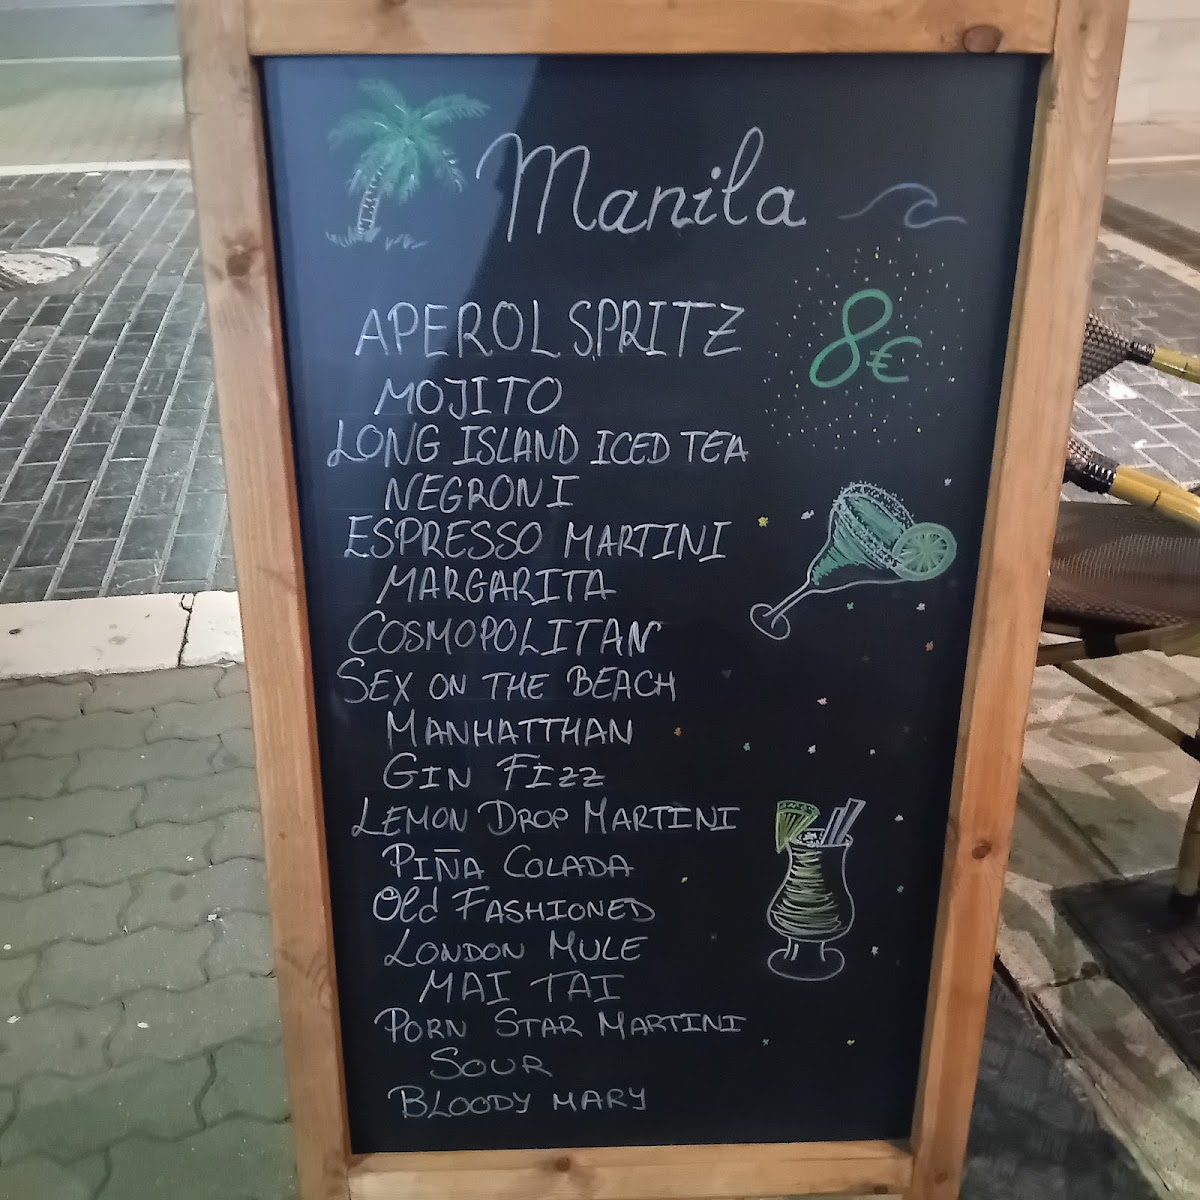 Manila
APEROL SPRITZ
8€
MOJITO
LONG ISLAND ICED TEA
NEGRONI
ESPRESSO MARTINI
MARGARITA
COSMOPOLITAN
SEX ON THE BEACH
MANHATTHAN
GIN FIZZ
LEMON DROP MARTINI
PIÑA COLADA
Old FASHIONED
LONDON MULE
MAI TAI
PORN STAR MARTINI
SOUR
BLOODY MARY